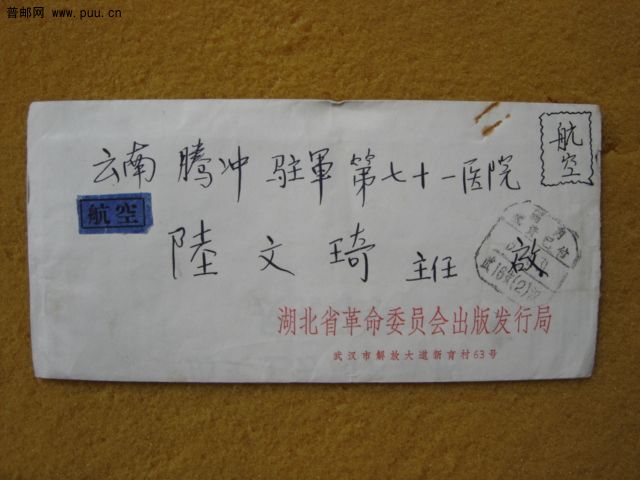 普邮网 www.puu.cn
航空
云南 腾冲 驻軍 第七十一医院
航空
陸文琦 主任 啟
湖北省革命委员会出版发行局
武汉市解放大道新育村63号